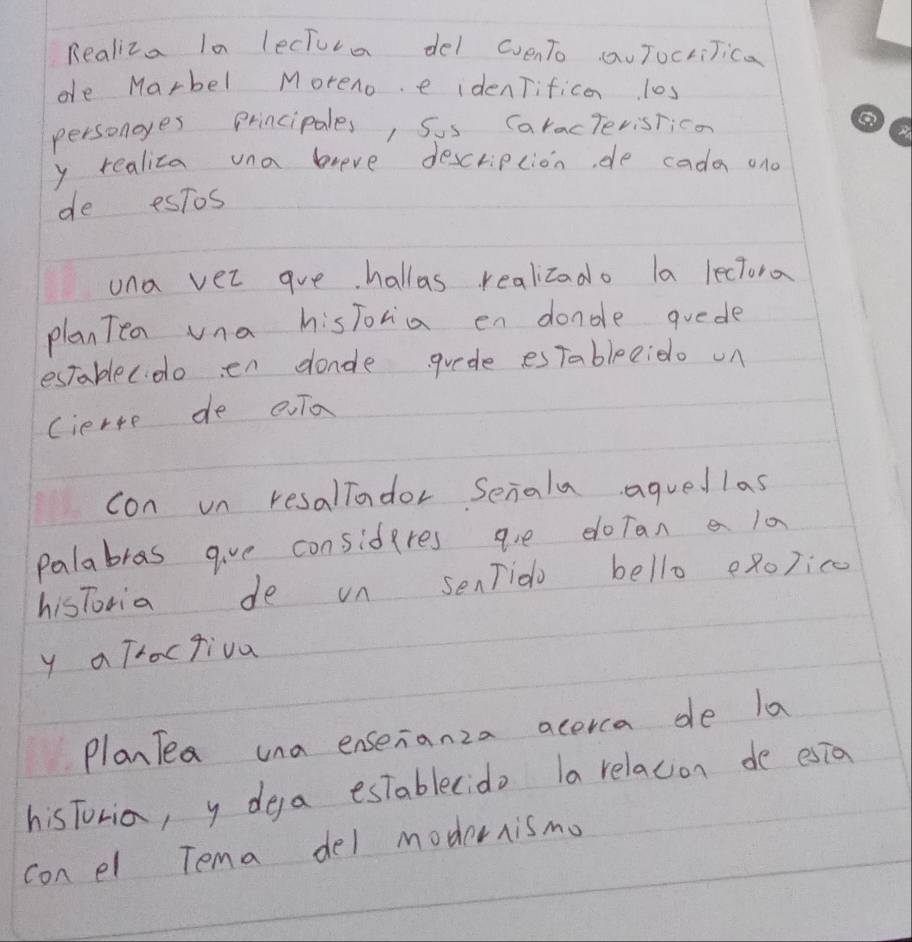 Realiza la lectura del cuento autocritica
de Marbel Moreno. e identifica los
personages principales, sus caracteristica
y realiza una breve descripción de cada uno
de estos
una vez que hallas realizado la lectura
plantea una historia en donde quede
establecido en donde quede establecido un
cierre de esta
con un resaltador señala aquellas
palabras que consideres que dotan a la
historia de un sentido bello exotico
y atractiva
IV. Plantea una enseñanza acerca de la
historia, y deja establecido la relacion de esta
con el tema del modernismo